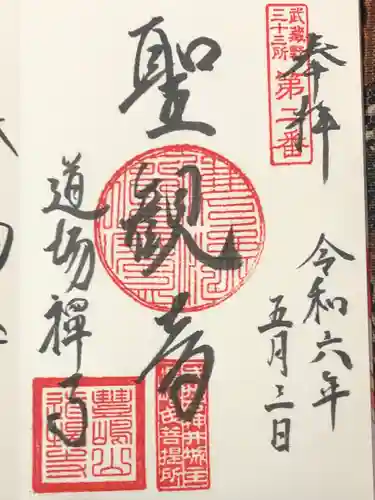 奉拝
武蔵野
三十三所
第二番
令和六年
五月三日
聖観音
道場禅寺
豊嶋山